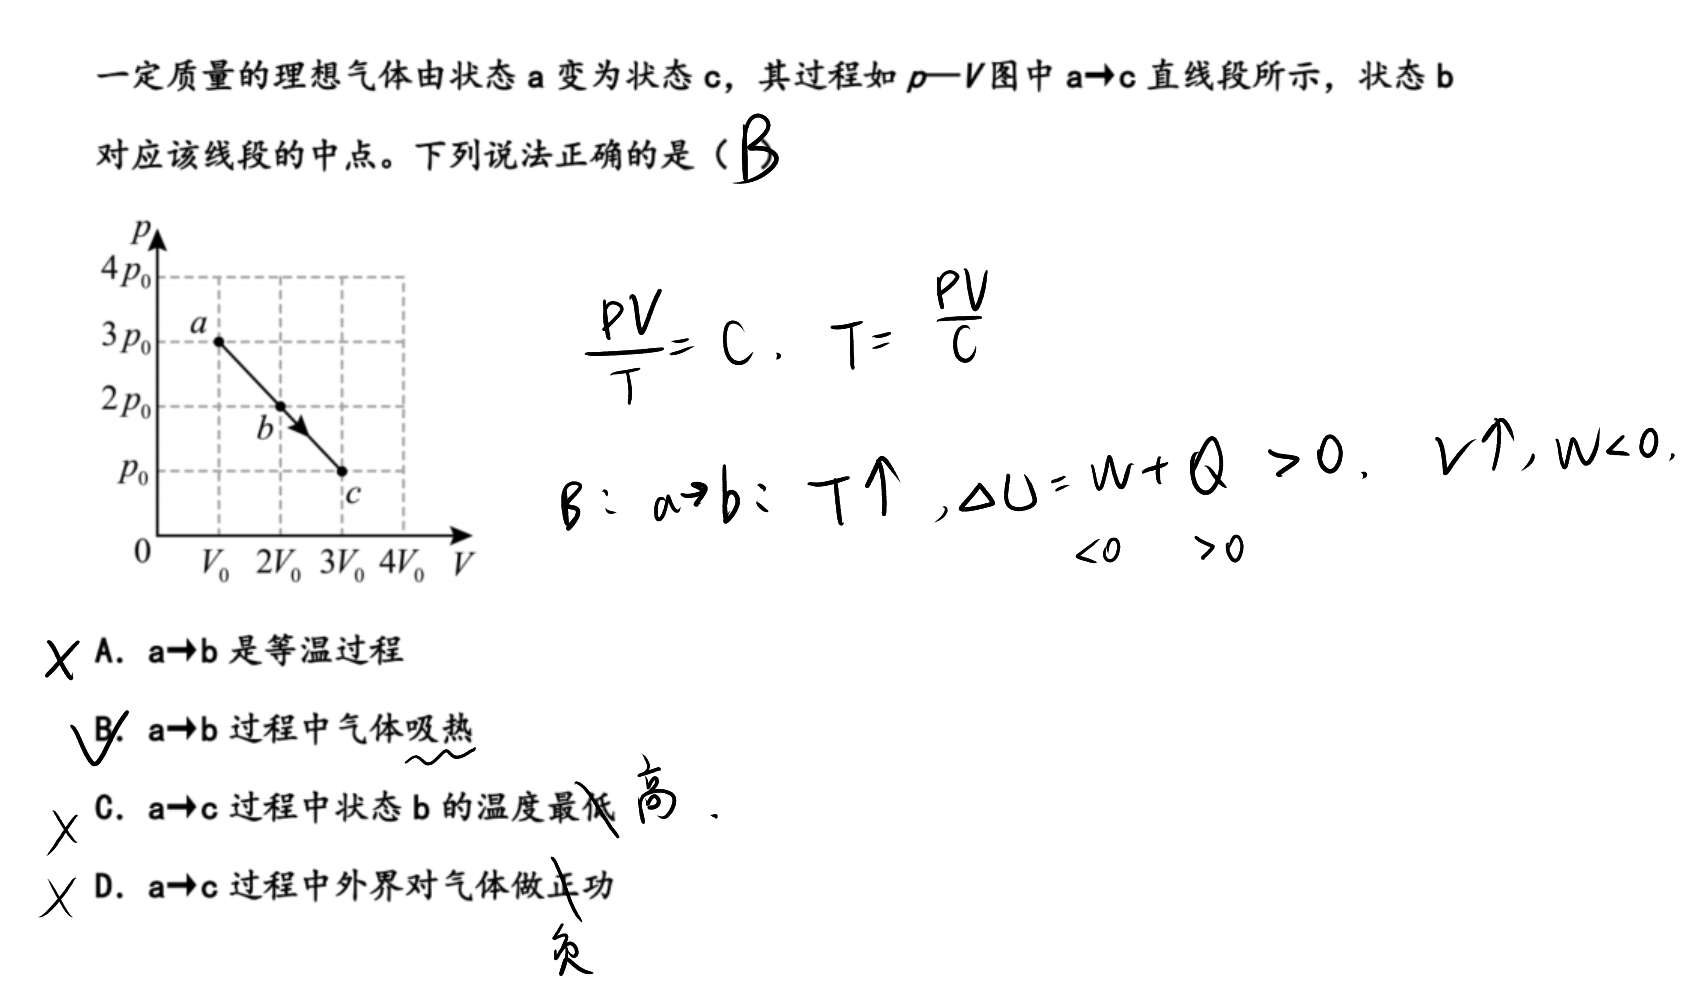 一定质量的理想气体由状态 a 变为状态 c，其过程如 p—V 图中 a→c 直线段所示，状态 b
对应该线段的中点。下列说法正确的是（B）
p
4p₀
3p₀
2p₀
p₀
0
V₀ 2V₀ 3V₀ 4V₀ V
a
b
c
PV/T = C. T = PV/C
B: a→b: T↑, ΔU = W + Q > 0. V↑, W<0.
<0 >0
× A. a→b 是等温过程
√ B. a→b 过程中气体吸热
× C. a→c 过程中状态 b 的温度最低 高.
× D. a→c 过程中外界对气体做正功
负